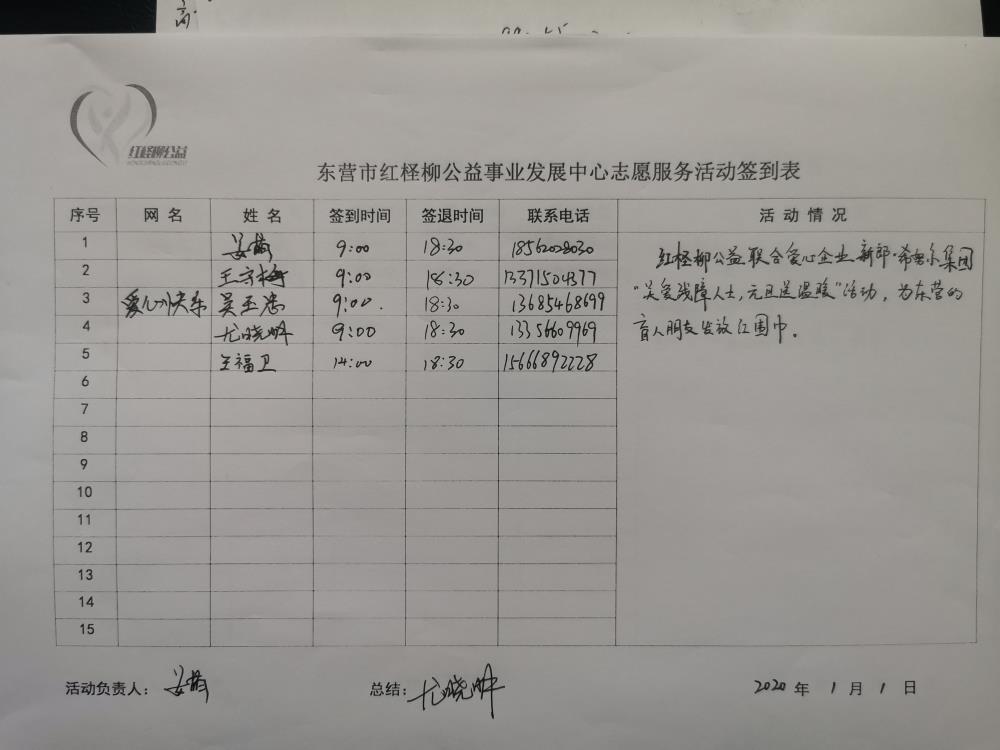 高
红柽柳公益
东营市红柽柳公益事业发展中心志愿服务活动签到表
序号 网名 姓名 签到时间 签退时间 联系电话 活动情况
1 9:00 18:30 18562028030
2 王守梅 9:00 18:30 13371504377
3 爱心快乐 吴玉忠 9:00 18:30 13685468699
4 尤晓 9:00 18:30 13356609969
5 王福卫 14:00 18:30 15666892228
红柽柳公益联合爱心企业新郎·希努尔集团
"关爱残障人士,元旦送温暖"活动,为东营的
盲人朋友发放红围巾。
6
7
8
9
10
11
12
13
14
15
活动负责人: 总结:尤晓 2020年1月1日